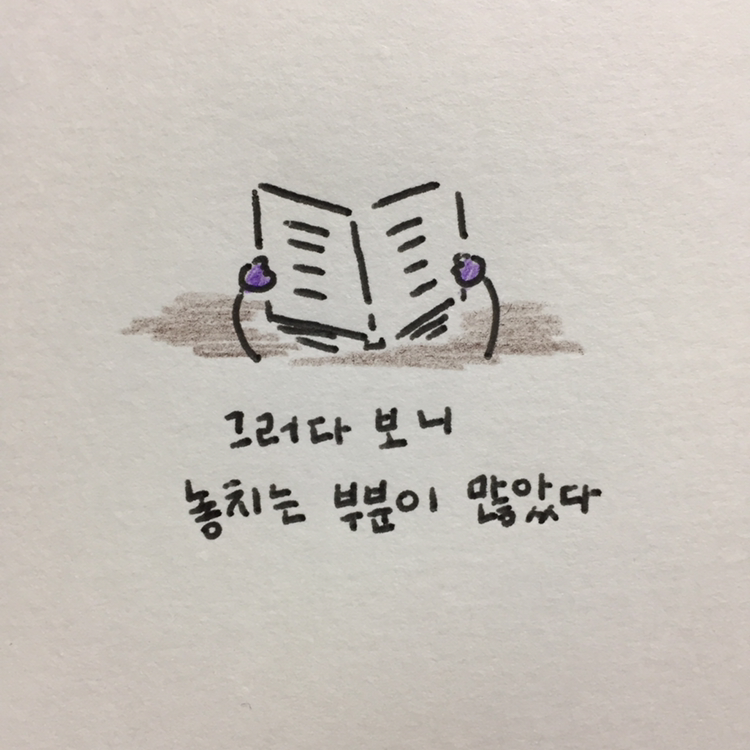 그러다 보니
놓치는 부분이 많았다